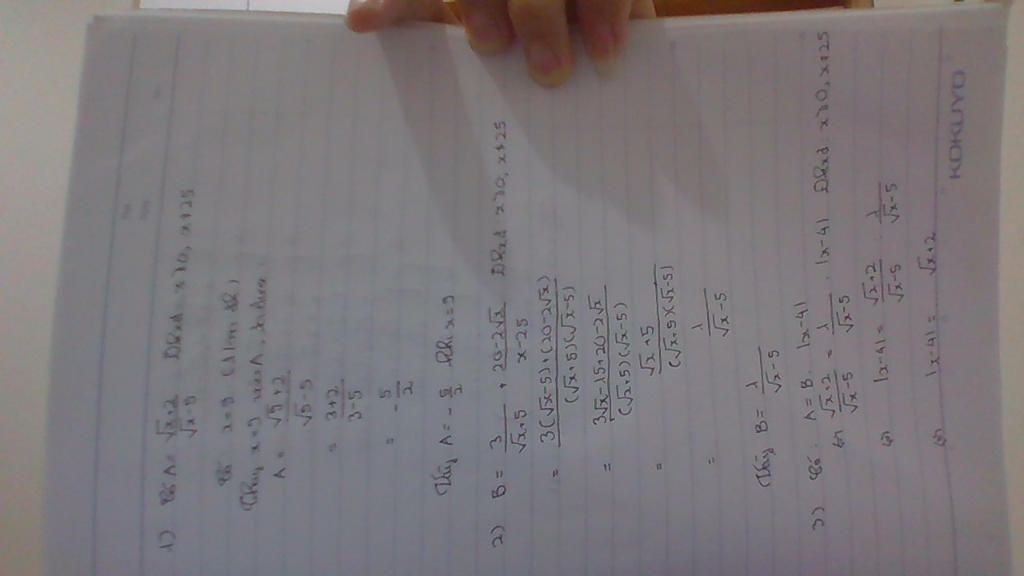 1) Có A = √x+2 / √x-5 ĐKxđ x≥0, x≠25
Có x=9 (tmđk)
Thay x=9 vào A, ta được
A = √9+2 / √9-5
= 3+2 / 3-5
= -5/2
Vậy A = -5/2 khi x=9
2) B = 3 / √x+5 + 20-2√x / x-25 ĐKxđ x≥0, x≠25
= 3(√x-5)+(20-2√x) / (√x+5)(√x-5)
= 3√x-15+20-2√x / (√x+5)(√x-5)
= √x+5 / (√x+5)(√x-5)
= 1 / √x-5
Vậy B = 1 / √x-5
3) Có: A=B.|x-4| ĐKxđ x≥0, x≠25
(=) √x+2 / √x-5 = 1 / √x-5 . |x-4|
(=) |x-4| = √x+2 / √x-5 : 1 / √x-5
(=) |x-4| = √x+2
KOKUYO